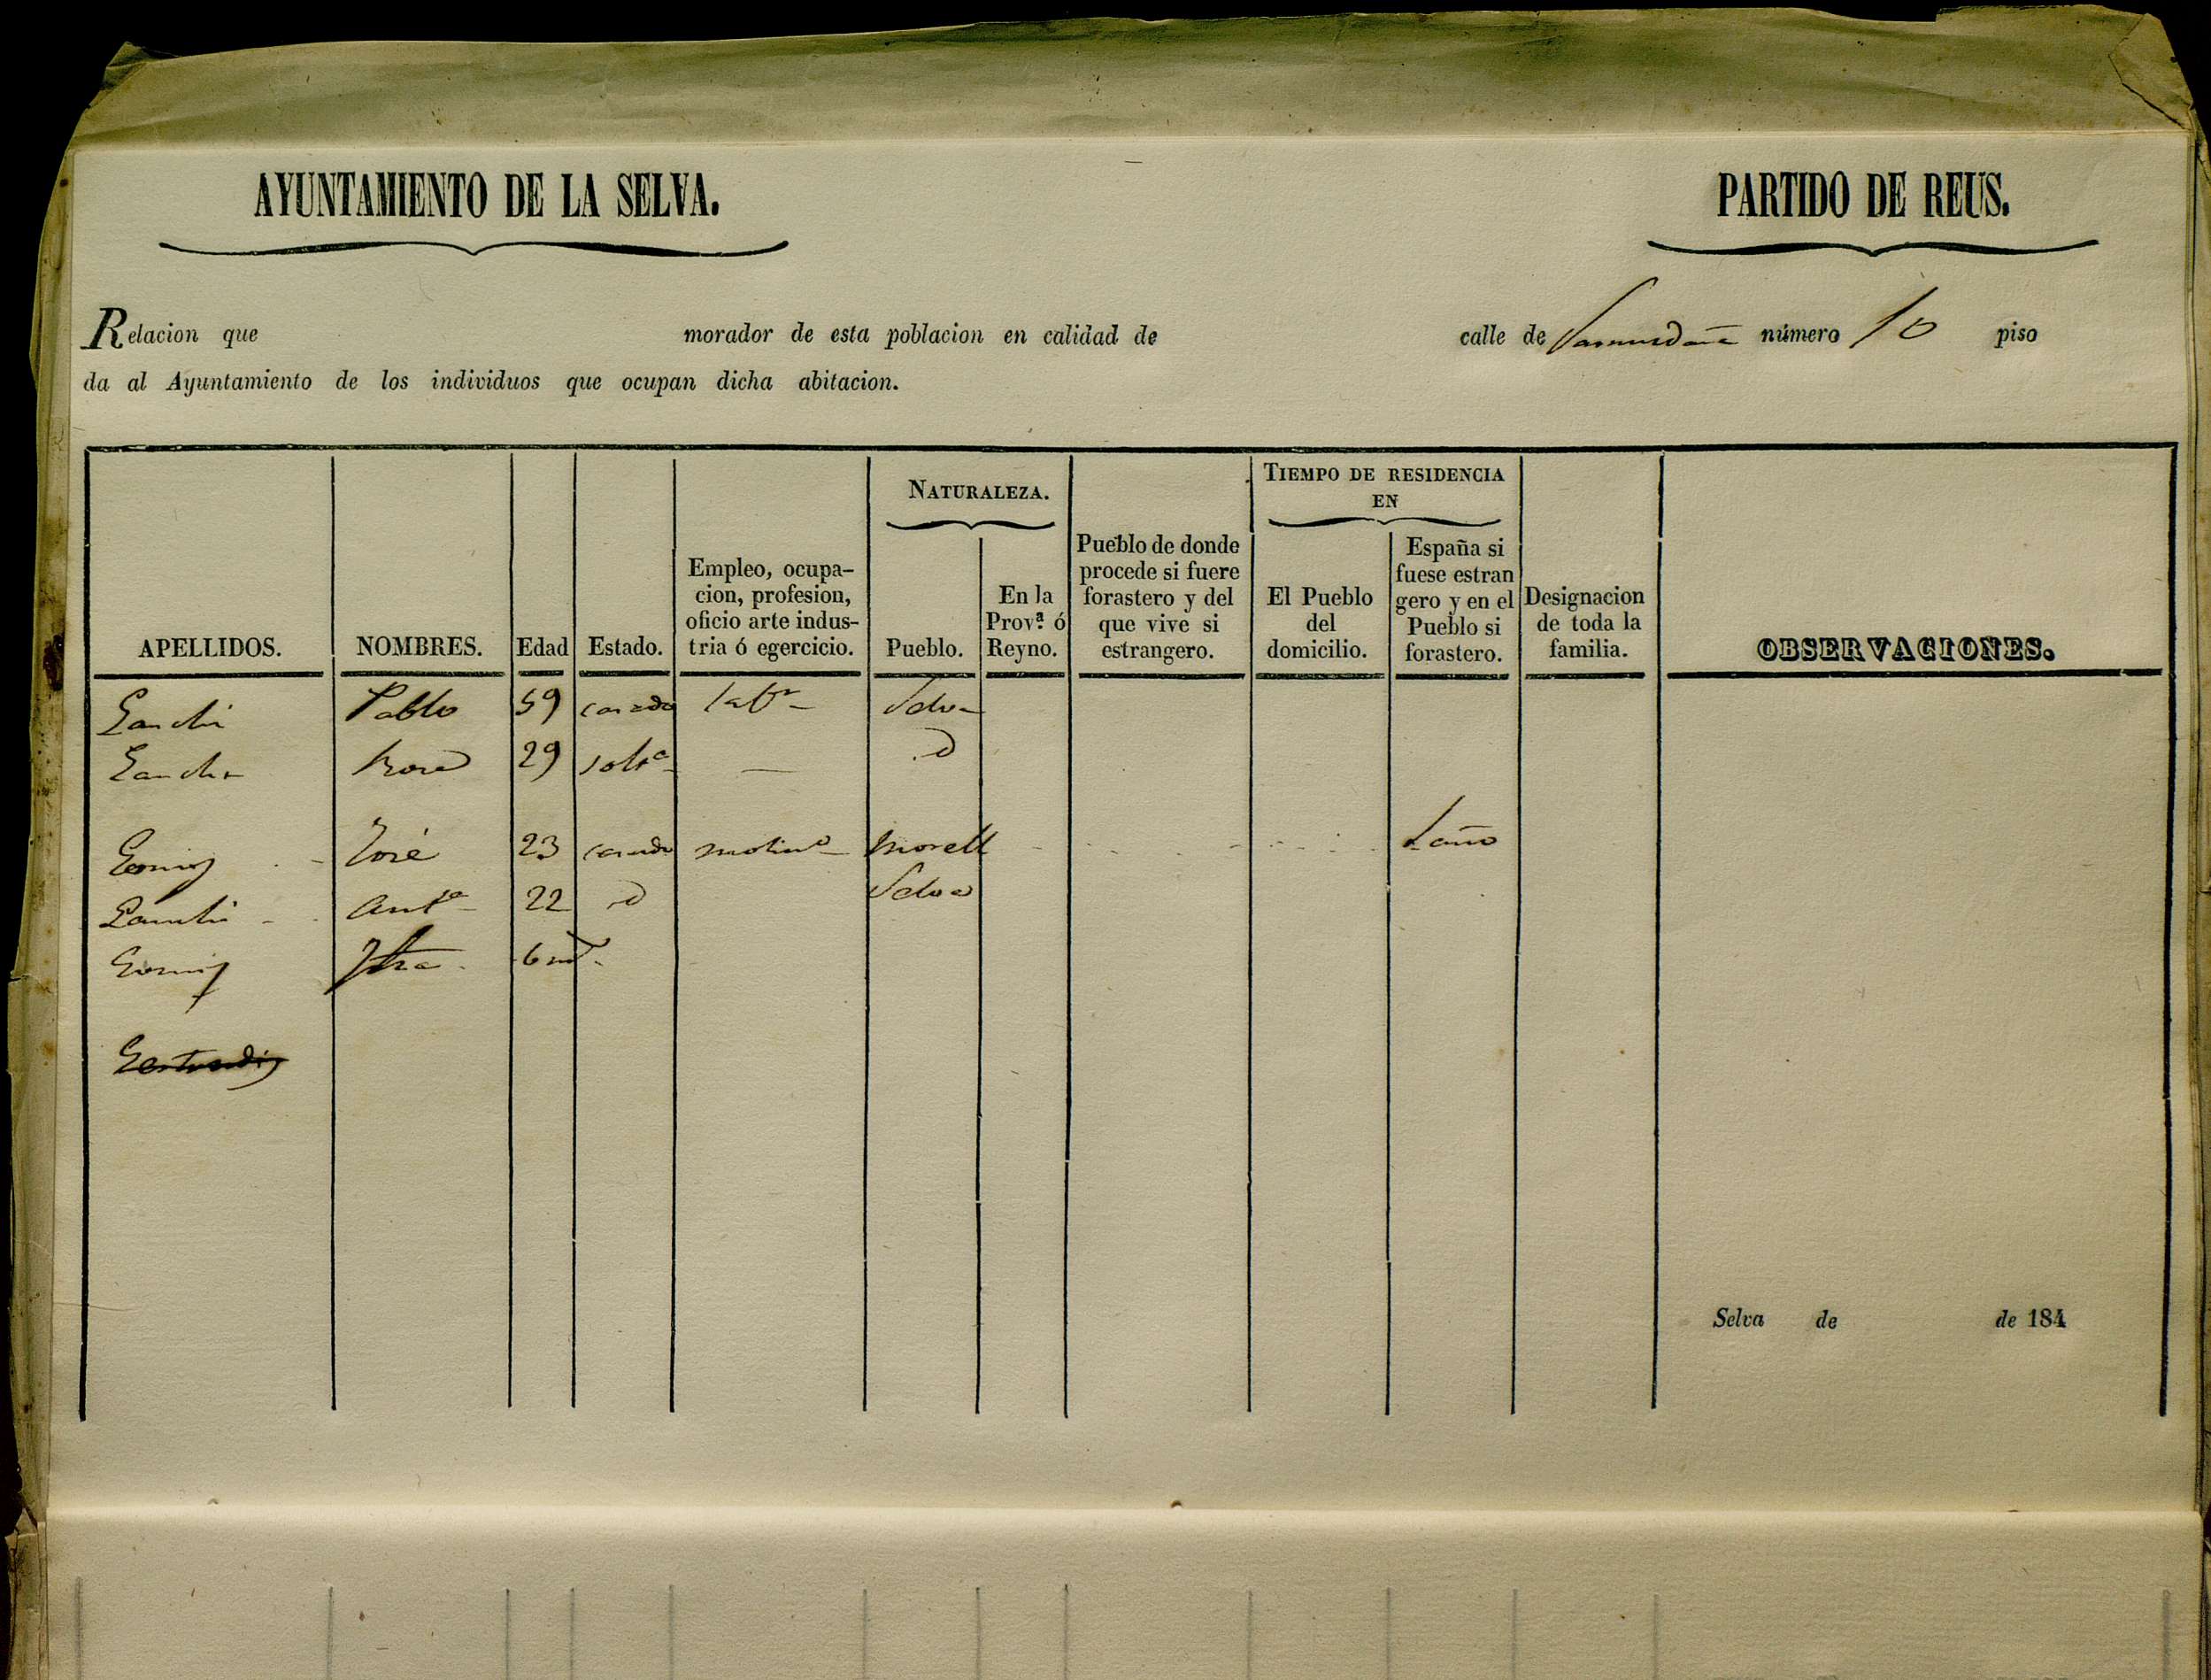 AYUNTAMIENTO DE LA SELVA.
PARTIDO DE REUS.
Relacion que morador de esta poblacion en calidad de calle de número 10 piso
da al Ayuntamiento de los individuos que ocupan dicha abitacion.
APELLIDOS.
NOMBRES.
Edad
Estado.
Empleo, ocupa-
cion, profesion,
oficio arte indus-
tria ó egercicio.
NATURALEZA.
Pueblo.
En la
Prov.ª ó
Reyno.
Pueblo de donde
procede si fuere
forastero y del
que vive si
estrangero.
TIEMPO DE RESIDENCIA
EN
El Pueblo
del
domicilio.
España si
fuese estran
gero y en el
Pueblo si
forastero.
Designacion
de toda la
familia.
OBSERVACIONES.
Pablo 59 casado labr Selva
29 solta d
José 23 casado molino Morell 1 año
Anta 22 d Selva
6 ms
Gertrudis
Selva de de 184